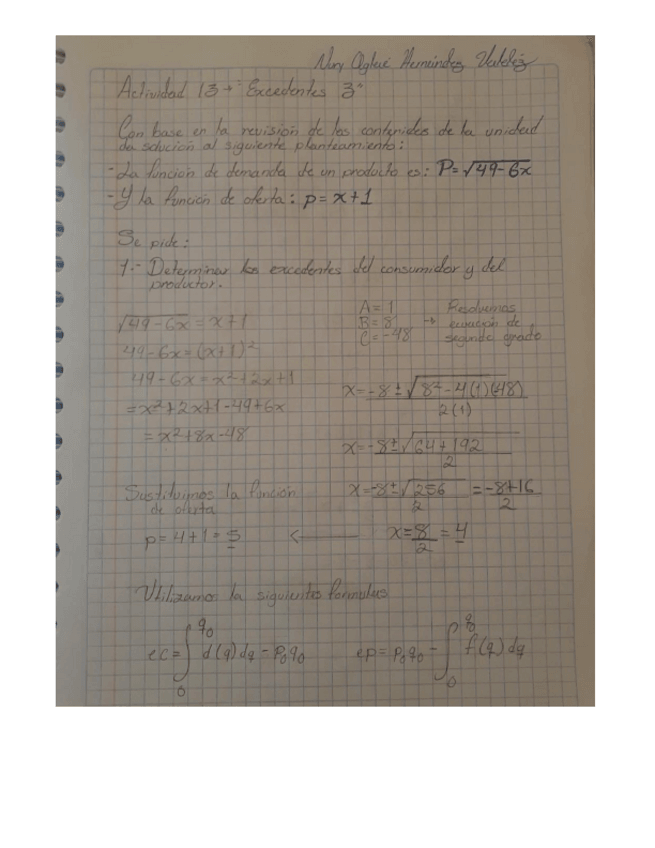 Actividad 13 → Excedentes 3"
Con base en la revisión de los contenidos de la unidad
da solución al siguiente planteamiento:
- La función de demanda de un producto es: P=√49-6x
- Y la función de oferta: p=x+1
Se pide:
1.- Determinar los excedentes del consumidor y del
productor.
√49-6x = x+1
49-6x=(x+1)²
49-6x=x²+2x+1
=x²+2x+1-49+6x
=x²+8x-48
A=1
B=8
C=-48
→ Resolvemos
ecuación de
segundo grado
x=-8±√8²-4(1)(-48)
2(1)
x=-8±√64+192
2
x=-8±√256 = -8+16
2 2
x=8 = 4
2
Sustituimos la función
de oferta
p=4+1=5 ←
Utilizamos la siguientes formulas
ec=∫ q₀ 0 d(q)dq - p₀q₀
ep=p₀q₀ - ∫ q₀ 0 f(q)dq